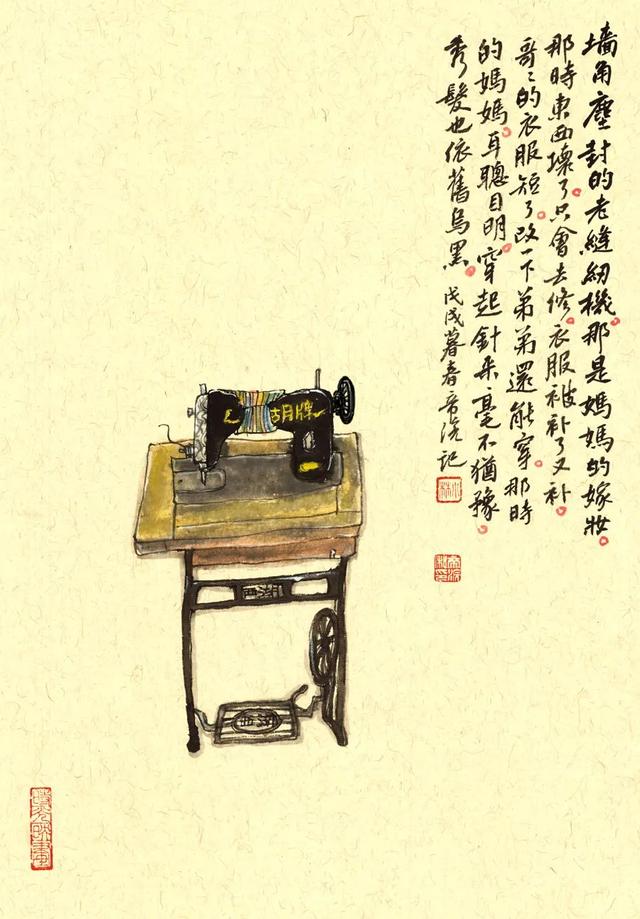 墙角塵封的老縫紉機。那是媽媽的嫁妝。
那時東西壞了。只會去修。衣服被补了又补。
哥〻的衣服短了。改一下弟弟還能穿。那時
的媽媽。耳聰目明。穿起針来毫不猶豫。
秀髮也依舊烏黑。戊戌暮春 记
胡牌